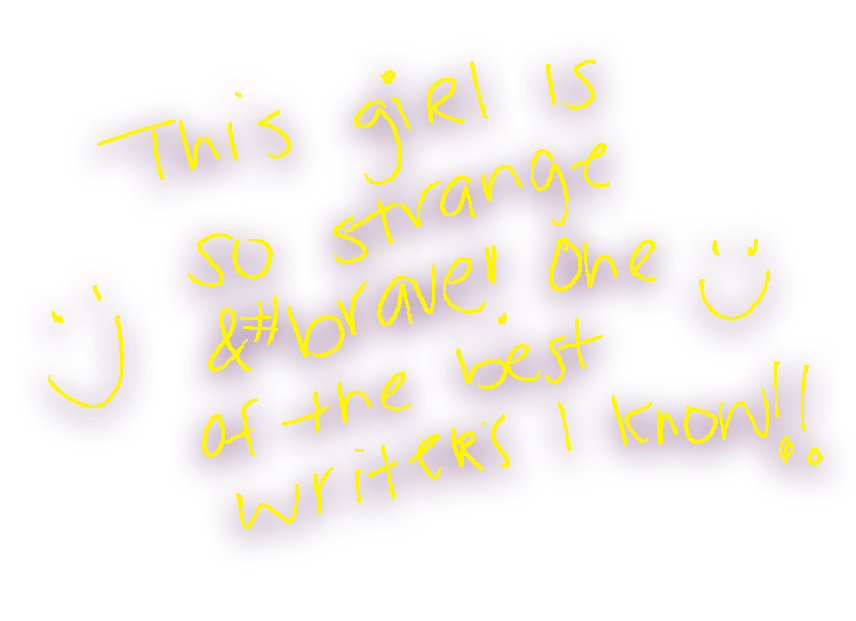 This giRl is
so strange
&#brave! One
of the best
writeRs I know!!